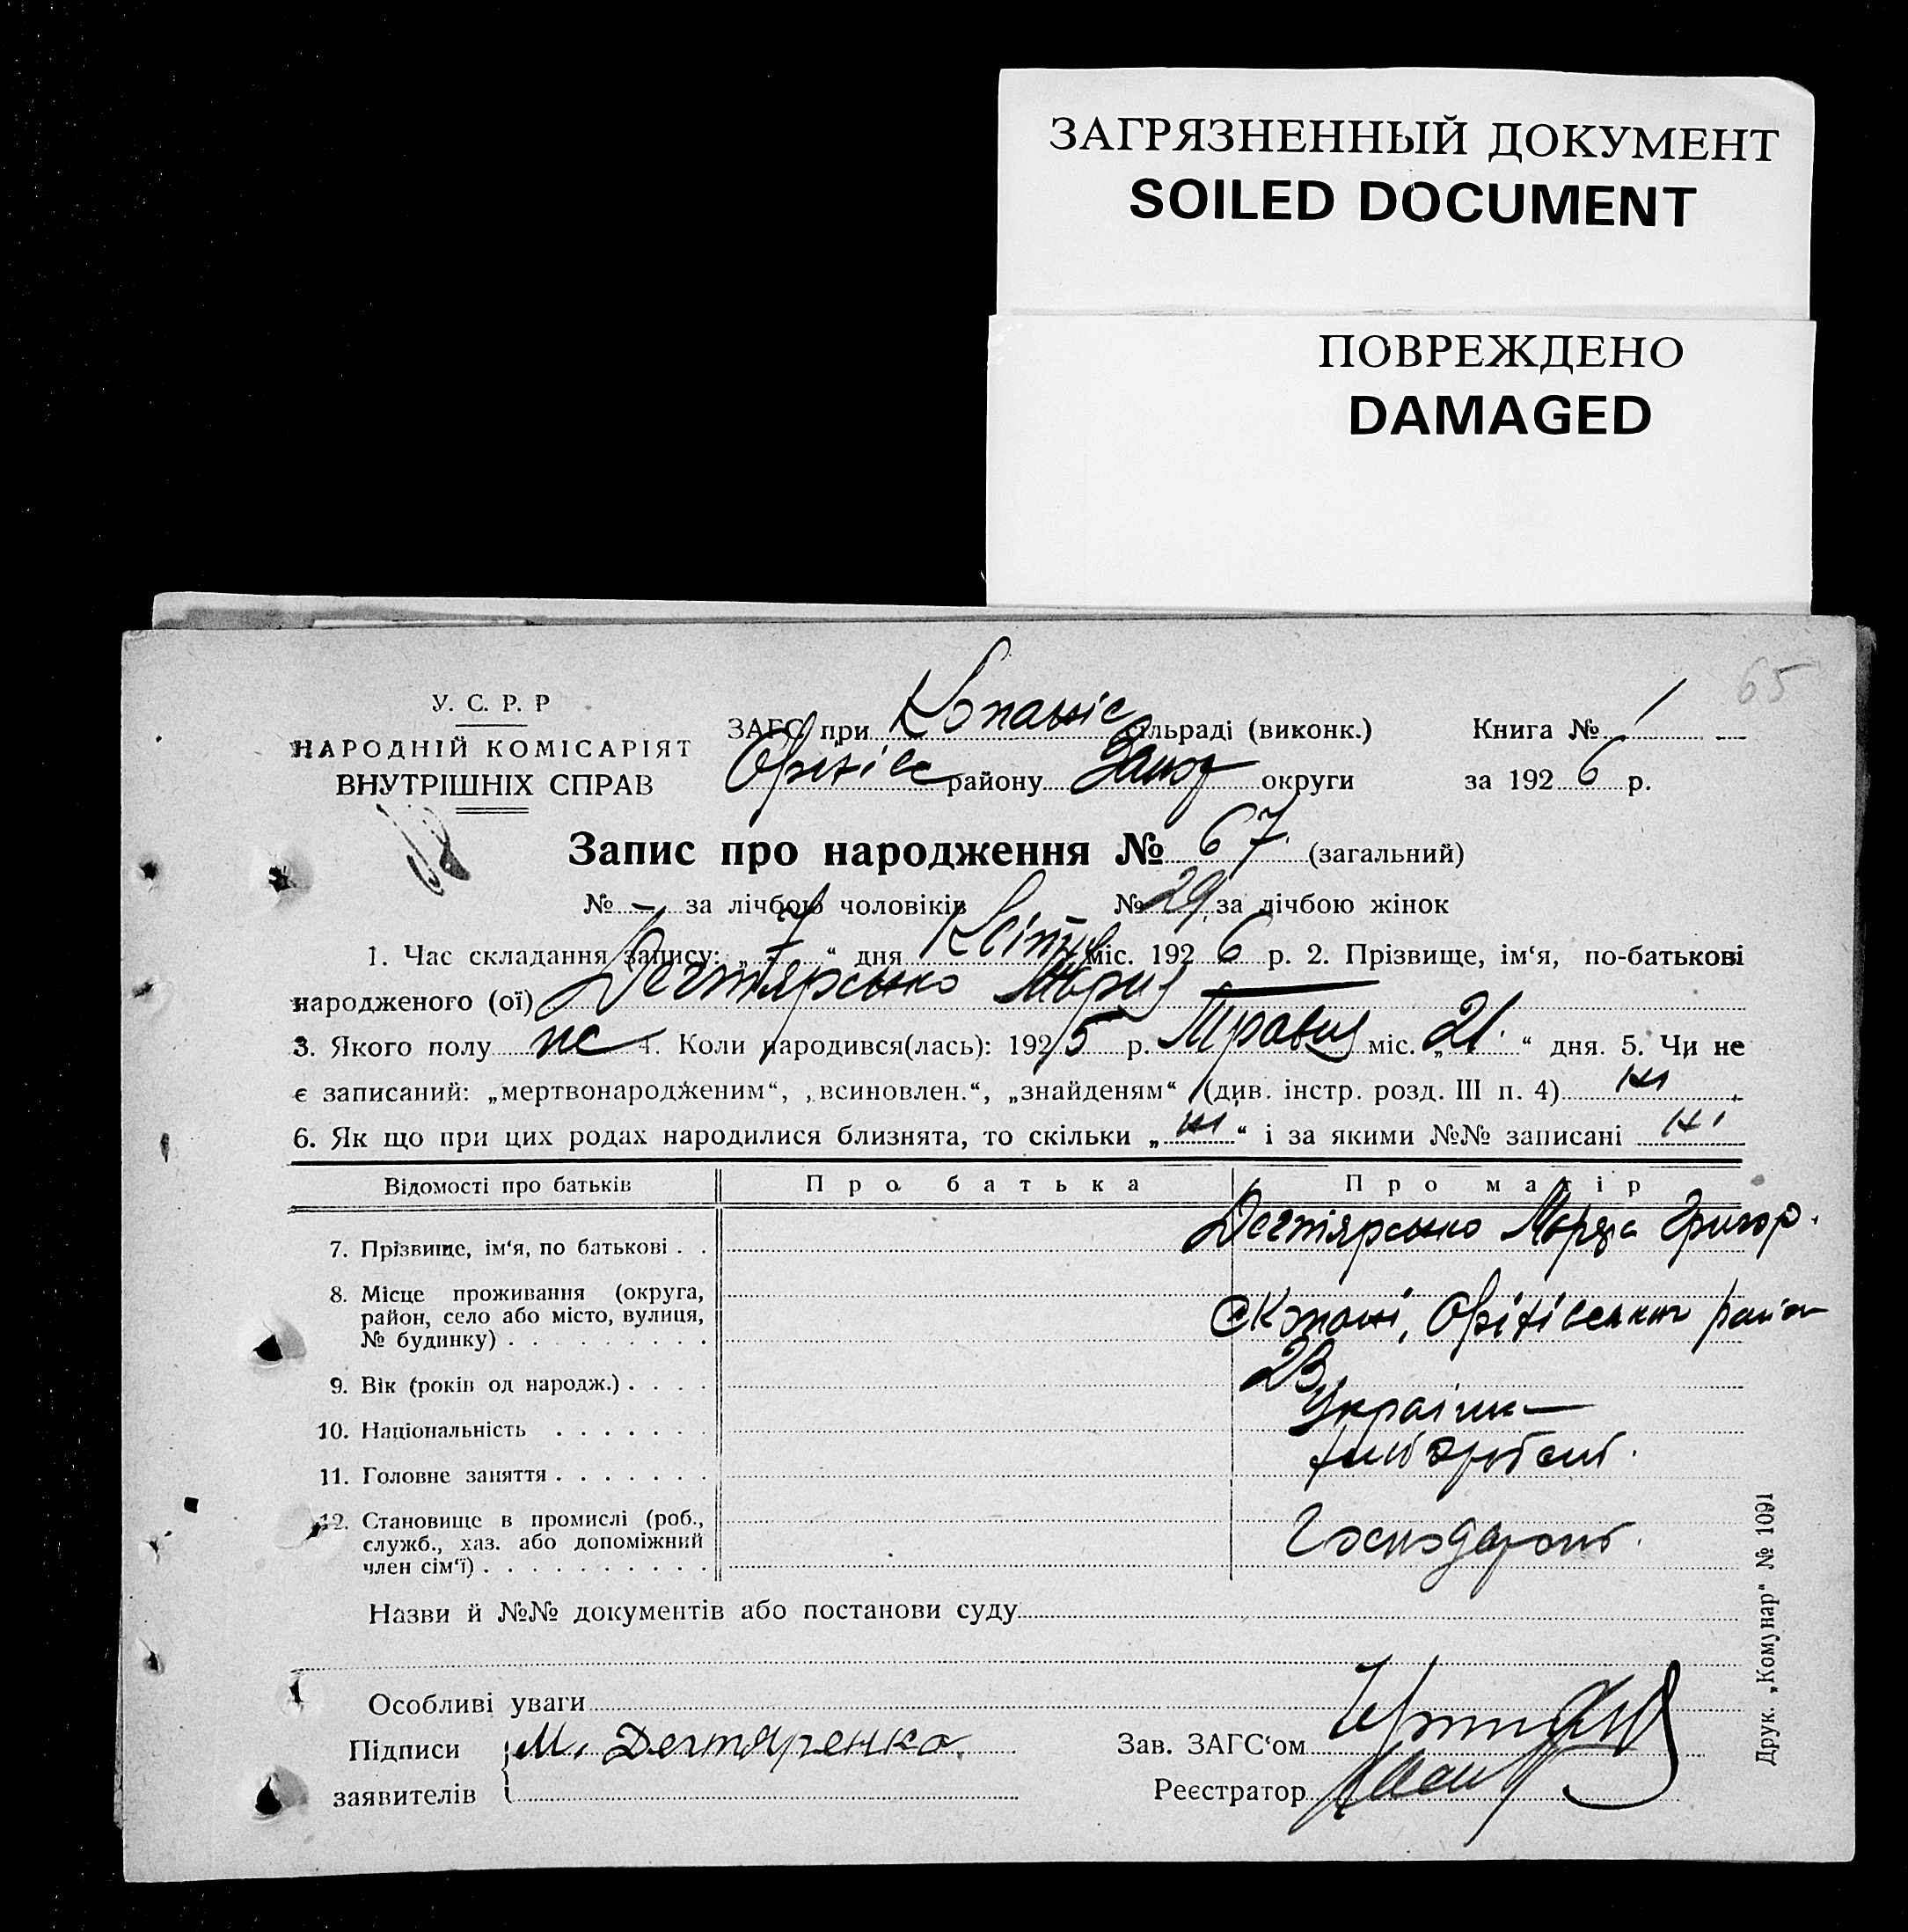 ЗАГРЯЗНЕННЫЙ ДОКУМЕНТ
SOILED DOCUMENT
ПОВРЕЖДЕНО
DAMAGED
65
У. С. Р. Р
НАРОДНІЙ КОМІСАРІЯТ
ВНУТРІШНІХ СПРАВ
ЗАГС при Копаніс сільраді (виконк.) Книга № 1
Оріхівс району Запор округи за 1926 р.
Запис про народження № 67 (загальний)
№ – за лічбою чоловіків № 29 за лічбою жінок
1. Час складання запису: „7“ дня Квітня міс. 1926 р. 2. Прізвище, ім‘я, по-батькові
народженого (ої) Дегтяренко Марія —
3. Якого полу жс 4. Коли народився(лась): 1925 р. Травня міс. „21“ дня. 5. Чи не
є записаний: „мертвонародженим“, „всиновлен.“, „знайденям“ (див. інстр. розд. III п. 4) ні
6. Як що при цих родах народилися близнята, то скільки „ні“ і за якими №№ записані ні
Відомості про батьків Про батька Про матір
7. Прізвище, ім‘я, по батькові . . Дегтяренко Григор.
8. Місце проживання (округа,
район, село або місто, вулиця,
№ будинку) . . . . . . . . . с Копані, Оріхівського район
9. Вік (років од народж.) . . . . 23
10. Національність . . . . . . . Українка
11. Головне заняття . . . . . . . хліборобст.
12. Становище в промислі (роб.,
служб., хаз. або допоміжний
член сім‘ї) . . . . . . . . . . Господарст.
Назви й №№ документів або постанови суду
Особливі уваги
Підписи М. Дегтяренко. Зав. ЗАГС‘ом
заявителів Реєстратор
Друк. „Комунар“ № 1091